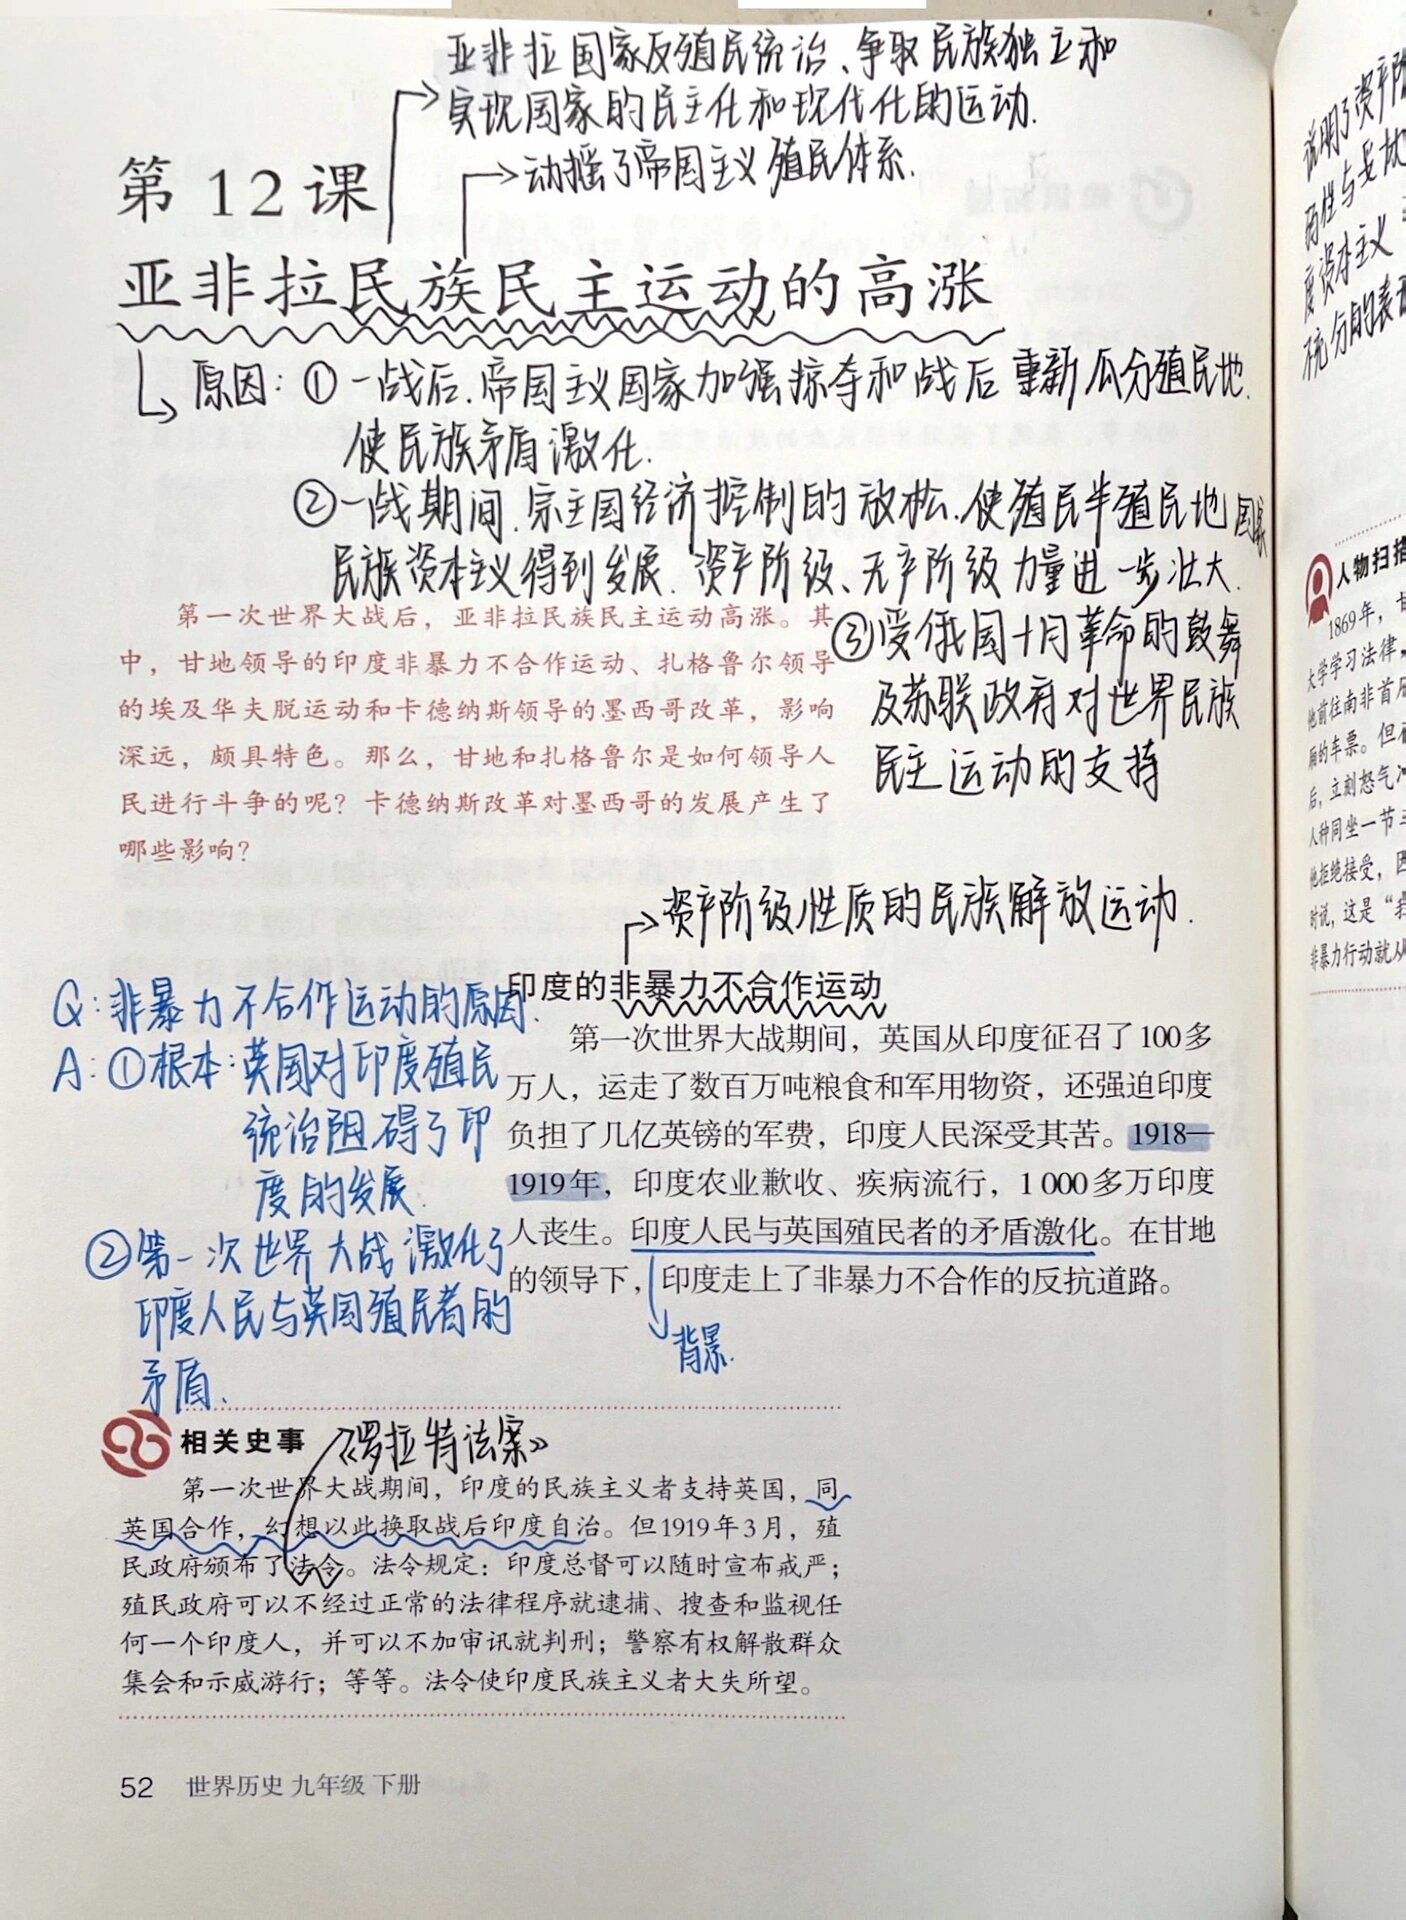 亚非拉国家反殖民统治、争取民族独立和
实现国家的民主化和现代化的运动.
动摇了帝国主义殖民体系.
第12课
亚非拉民族民主运动的高涨
原因:①一战后.帝国主义国家加强掠夺和战后重新瓜分殖民地.
使民族矛盾激化.
②一战期间.宗主国经济控制的放松.使殖民半殖民地国家
民族资本主义得到发展.资产阶级、无产阶级力量进一步壮大.
③受俄国十月革命的鼓舞
及苏联政府对世界民族
民主运动的支持
第一次世界大战后，亚非拉民族民主运动高涨。其
中，甘地领导的印度非暴力不合作运动、扎格鲁尔领导
的埃及华夫脱运动和卡德纳斯领导的墨西哥改革，影响
深远，颇具特色。那么，甘地和扎格鲁尔是如何领导人
民进行斗争的呢？卡德纳斯改革对墨西哥的发展产生了
哪些影响？
资产阶级性质的民族解放运动.
印度的非暴力不合作运动
第一次世界大战期间，英国从印度征召了100多
万人，运走了数百万吨粮食和军用物资，还强迫印度
负担了几亿英镑的军费，印度人民深受其苦。1918—
1919年，印度农业歉收、疾病流行，1 000多万印度
人丧生。印度人民与英国殖民者的矛盾激化。在甘地
的领导下，印度走上了非暴力不合作的反抗道路。
背景.
Q:非暴力不合作运动的原因.
A:①根本:英国对印度殖民
统治阻碍了印
度的发展.
②第一次世界大战激化了
印度人民与英国殖民者的
矛盾.
相关史事
《罗拉特法案》
第一次世界大战期间，印度的民族主义者支持英国，同
英国合作，幻想以此换取战后印度自治。但1919年3月，殖
民政府颁布了法令。法令规定：印度总督可以随时宣布戒严；
殖民政府可以不经过正常的法律程序就逮捕、搜查和监视任
何一个印度人，并可以不加审讯就判刑；警察有权解散群众
集会和示威游行；等等。法令使印度民族主义者大失所望。
52 世界历史 九年级 下册
说明了资产阶
两性与妥协
度资本主义
不充分的表现
人物扫描
1869年，甘
大学学习法律，
他前往南非首
厢的车票。但
后，立刻怒气
人种同坐一节三
他拒绝接受，因
时说，这是“我
非暴力行动就从